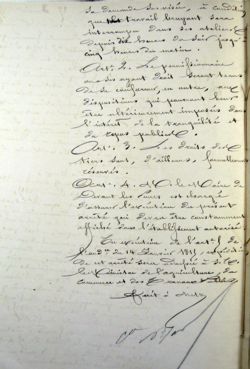 sa demande susvisée, à condition
que le travail bruyant sera
interrompu dans ses ateliers
depuis dix heures du soir jusqu'à
cinq heures du matin.
Art. 2. Le permissionnaire
ou ses ayant droit seront tenus
de se conformer, en outre, aux
dispositions qui pourront leur
être ultérieurement imposées dans
l'intérêt de la tranquillité et
du repos public.
Art. 3. Les droits des
tiers sont, d'ailleurs, formellement
réservés.
Art. 4. M. le Maire de
devant les Ponts est chargé
d'assurer l'exécution du présent
arrêté qui devra être constamment
affiché dans l'établissement autorisé.
En exécution de l'art. 5
de l'ord. du 14 Janvier 1815, expédition
de cet arrêté sera adressée à M.
le Ministre de l'agriculture, du
commerce et des Travaux
Fait à Metz